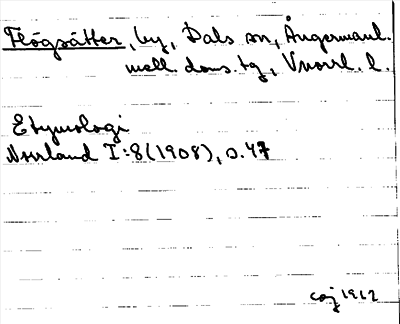 Flögsätter, by, Dals sn, Ångermanl.
mell. doms. tg, Vnorrl. l.
Etymologi
Norrland I:8 (1908), s. 47
1912